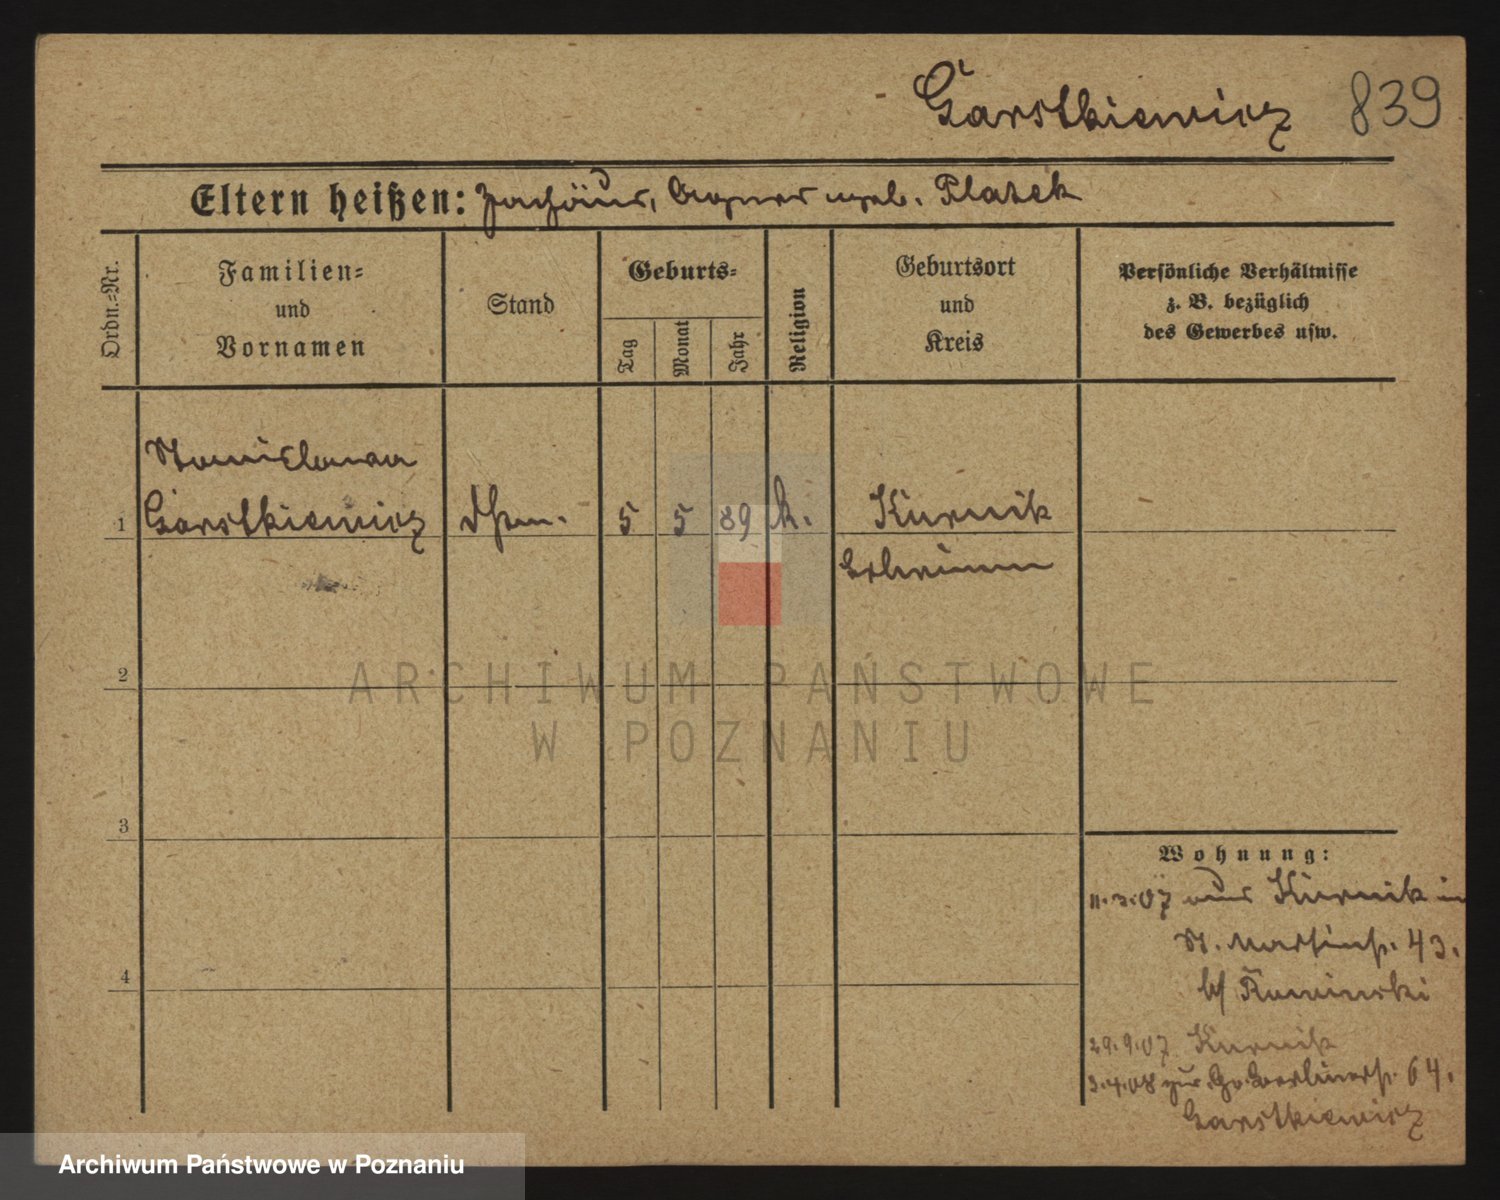 Garstkiewicz 839
Eltern heißen: Zachäus, Agnes geb. Platek
Ordn.-Nr.
Familien-
und
Vornamen
Stand
Geburts-
Tag
Monat
Jahr
Religion
Geburtsort
und
Kreis
Persönliche Verhältnisse
z. B. bezüglich
des Gewerbes usw.
Stanislawa
1 Garstkiewicz 5 5 89 k. Kurnik
Schrimm
2
ARCHIWUM PAŃSTWOWE
W POZNANIU
3
4
Wohnung:
11.3.07 aus Kurnik in
St. Martinstr. 43.
b/ Kaminski
29.9.07 Kurnik
3.4.08 zur. Gr. Berlinerstr. 64.
Garstkiewicz
Archiwum Państwowe w Poznaniu